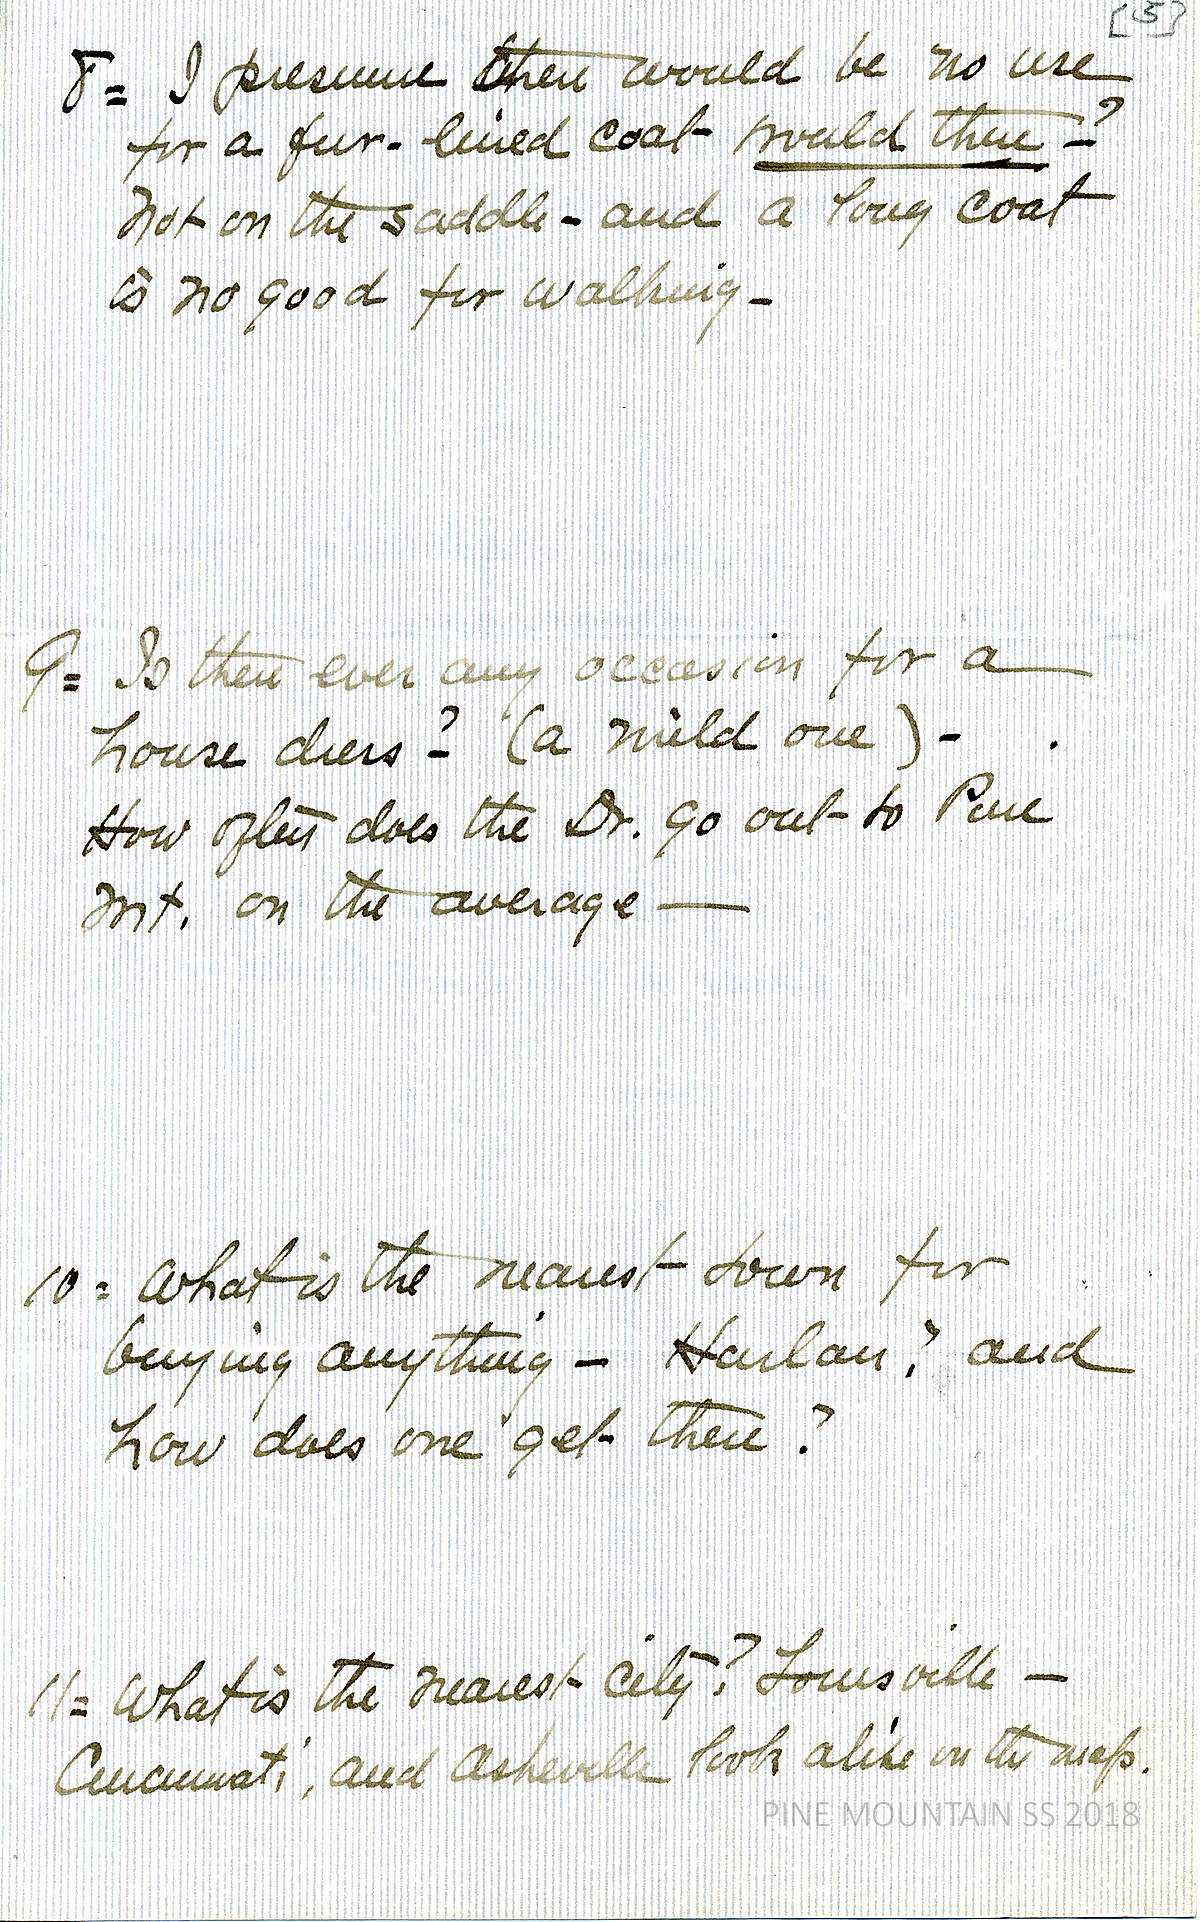 [5]
8= I presume there would be no use
for a fur-lined coat would there-?
Not on the saddle - and a long coat
is no good for walking -
9= Is there ever any occasion for a
house dress-? (a mild one) -
How often does the Dr. go out to Pine
Mt. on the average —
10= What is the nearest town for
buying anything - Harlan? and
how does one get there?
11= What is the nearest city? Louisville —
Cincinnati, and Asheville look alike on the map.
PINE MOUNTAIN SS 2018